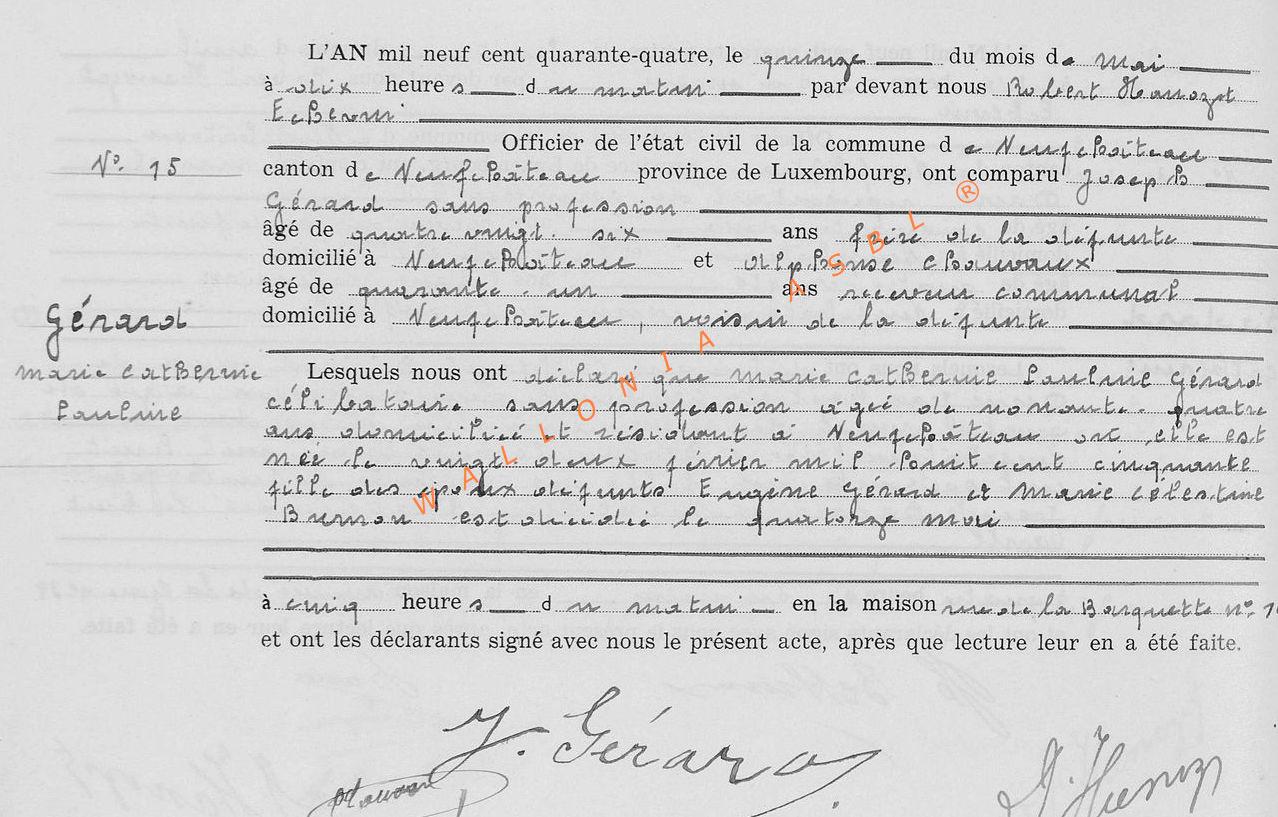 L'AN mil neuf cent quarante-quatre, le quinze du mois de Mai
à dix heures du matin par devant nous Robert
Echevin
Officier de l'état civil de la commune de Neufchâteau
N° 15
canton de Neufchâteau province de Luxembourg, ont comparu Joseph
Gérard sans profession
âgé de quatre vingt six ans frère de la défunte
domicilié à Neufchâteau et Alphonse Chauvaux
âgé de quarante un ans receveur communal
domicilié à Neufchâteau, voisin de la défunte
Gérard
Marie Catherine
Pauline
Lesquels nous ont déclaré que Marie Catherine Pauline Gérard
célibataire sans profession âgée de nonante quatre
ans domiciliée et résidant à Neufchâteau où elle est
née le vingt deux février mil huit cent cinquante
fille des époux défunts Eugène Gérard et Marie Célestine
est décédée le quatorze Mai
à cinq heures du matin en la maison rue de la Barquette n°
et ont les déclarants signé avec nous le présent acte, après que lecture leur en a été faite.
J. Gérard
WALLONIA ASBL ®